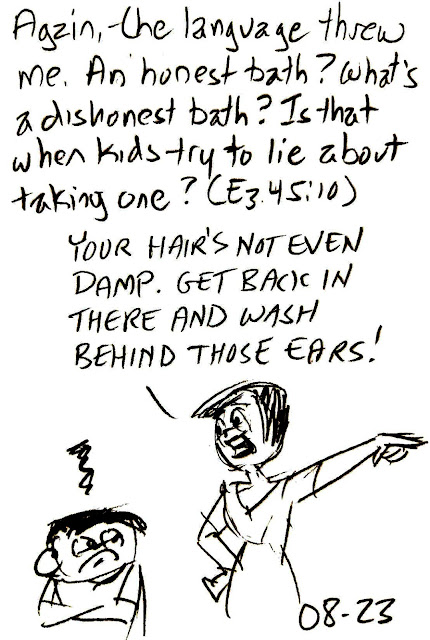 Again, the language threw
me. An honest bath? What's
a dishonest bath? Is that
when kids try to lie about
taking one? (Ez. 45:10)
YOUR HAIR'S NOT EVEN
DAMP. GET BACK IN
THERE AND WASH
BEHIND THOSE EARS!
08-23